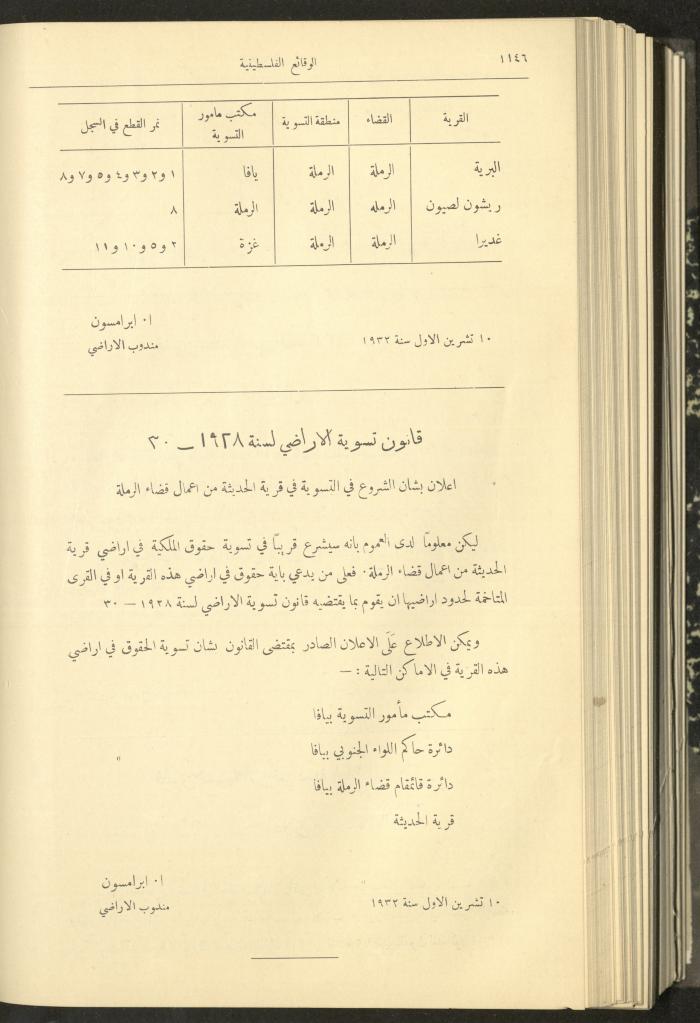 ١١٤٦
الوقائع الفلسطينية
القرية القضاء منطقة التسوية مكتب مامور التسوية نمر القطع في السجل
البرية الرملة الرملة يافا ١ و٢ و٣ و٤ و٥ و٧ و٨
ريشون لصيون الرمله الرملة الرملة ٨
غديرا الرملة الرملة غزة ٢ و٥ و١٠ و١١
ا٠ ابرامسون
١٠ تشرين الاول سنة ١٩٣٢ مندوب الاراضي
قانون تسوية الاراضي لسنة ١٩٢٨ – ٣٠
اعلان بشان الشروع في التسوية في قرية الحديثة من اعمال قضاء الرملة
ليكن معلوماً لدى العموم بانه سيشرع قريباً في تسوية حقوق الملكية في اراضي قرية
الحديثة من اعمال قضاء الرملة٠ فعلى من يدعي باية حقوق في اراضي هذه القرية او في القرى
المتاخمة لحدود اراضيها ان يقوم بما يقتضيه قانون تسوية الاراضي لسنة ١٩٢٨ — ٣٠
ويمكن الاطلاع عَلَى الاعلان الصادر بمقتضى القانون بشان تسوية الحقوق في اراضي
هذه القرية في الاماكن التالية : —
مكتب مأمور التسوية بيافا
دائرة حاكم اللواء الجنوبي بيافا
دائرة قائمقام قضاء الرملة بيافا
قرية الحديثة
ا٠ ابرامسون
١٠ تشرين الاول سنة ١٩٣٢ مندوب الاراضي